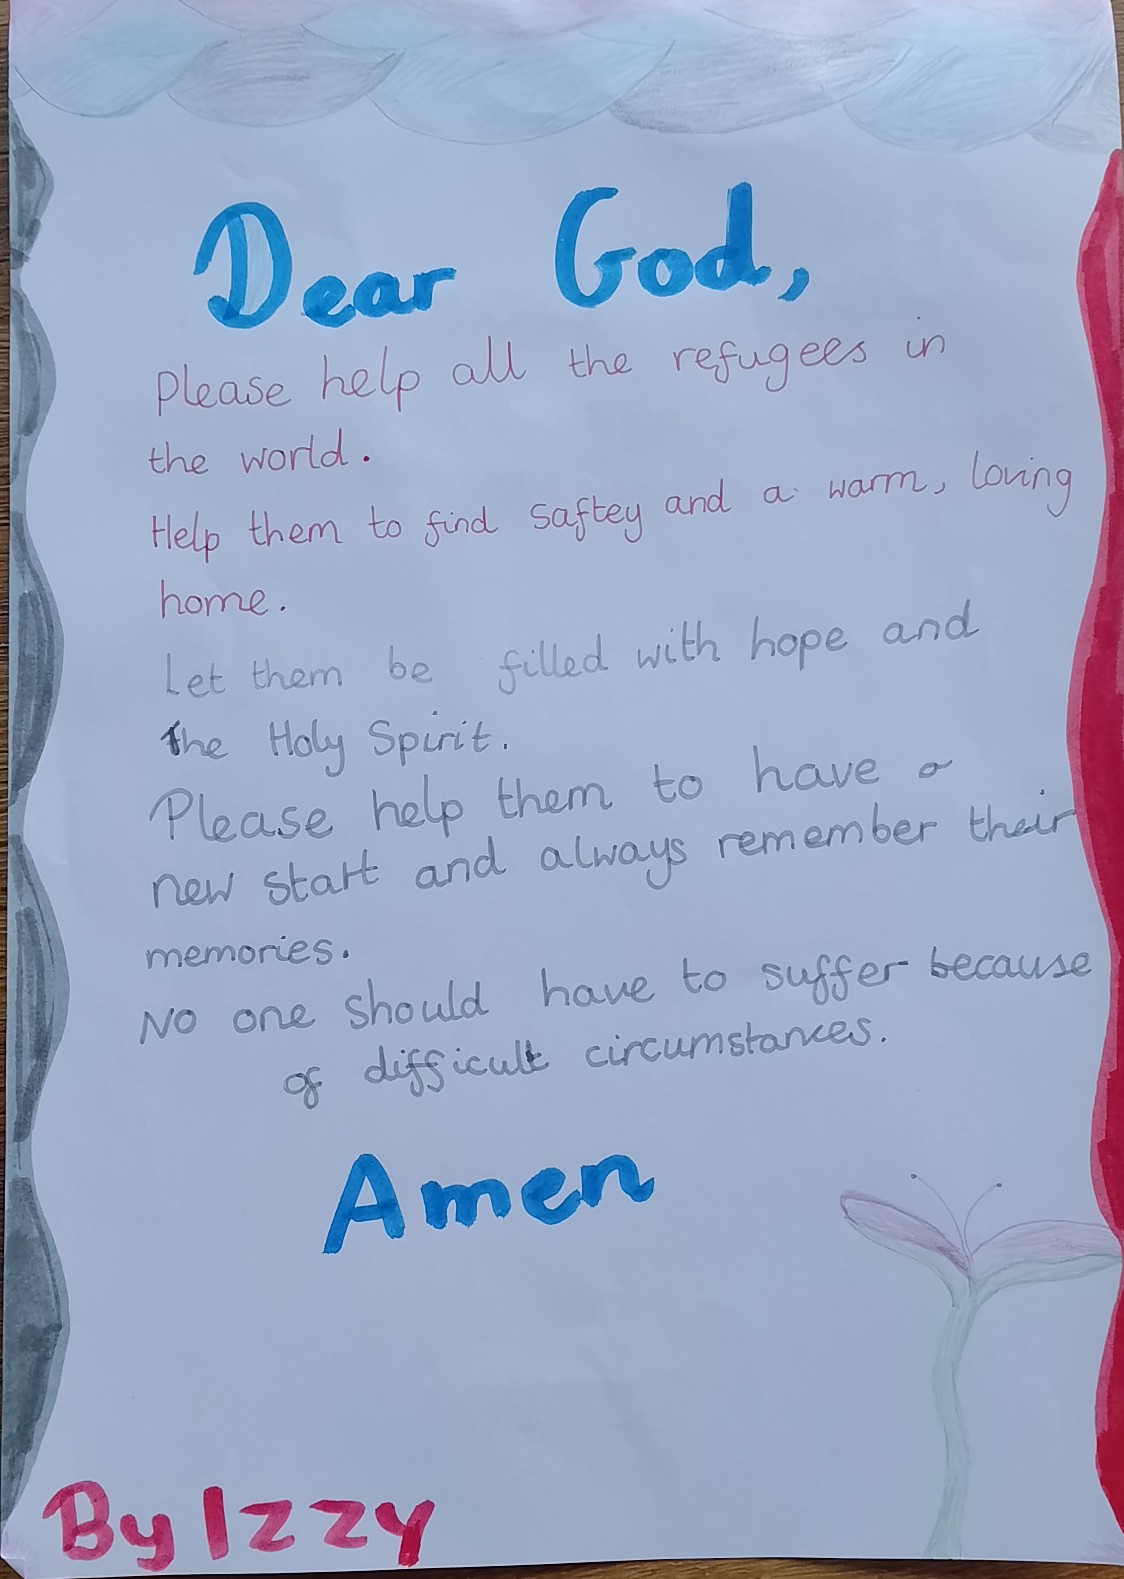 Dear God,
Please help all the refugees in
the world.
Help them to find saftey and a warm, loving
home.
Let them be filled with hope and
the Holy Spirit.
Please help them to have a
new start and always remember their
memories.
No one should have to suffer because
of difficult circumstances.
Amen
By Izzy